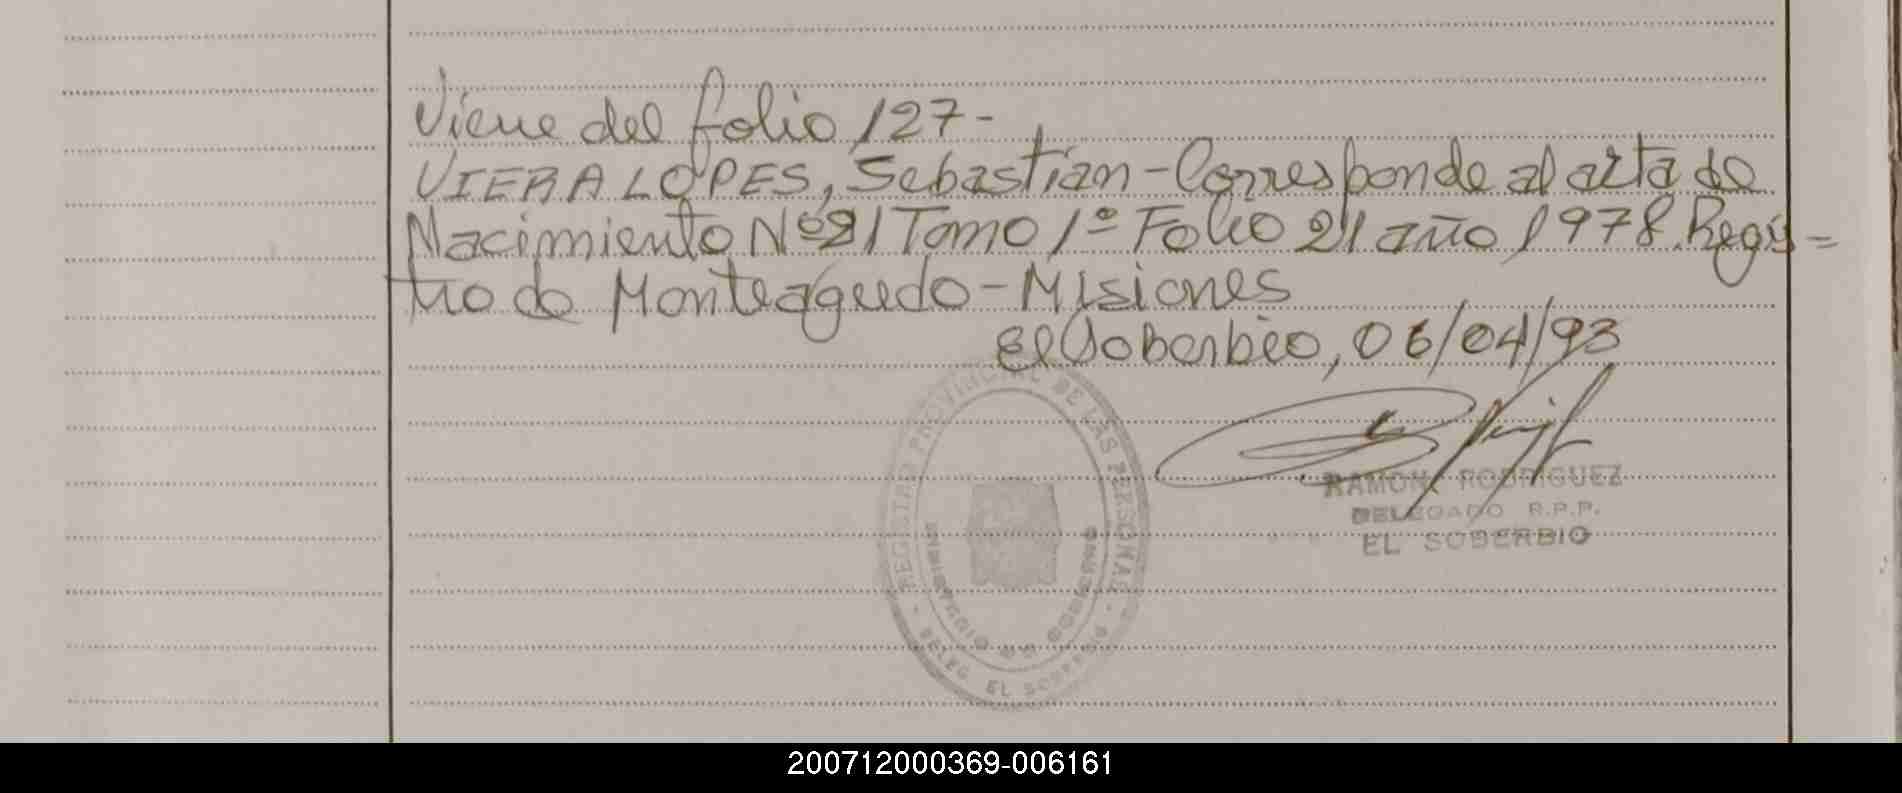 Viene del folio 127-
VIERA LOPES, Sebastián - Corresponde al acta de
Nacimiento Nº 21 Tomo 1º Folio 21 año 1978. Regis=
tro de Monteagudo - Misiones
El Soberbio, 06/04/93
REGISTRO PROVINCIAL DE LAS PERSONAS
MINISTERIO DE GOBIERNO
DELEG EL SOBERBIO
RAMON RODRIGUEZ
DELEGADO R.P.P.
EL SOBERBIO
200712000369-006161